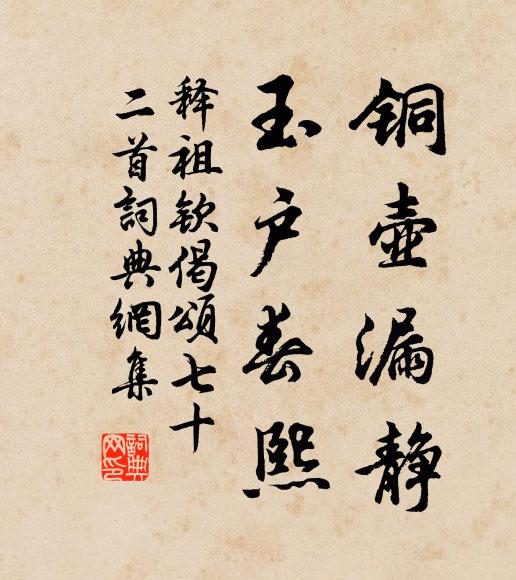 铜壶漏静
玉户春熙
释祖钦偈颂七十
二首词典網集
詞典
网印